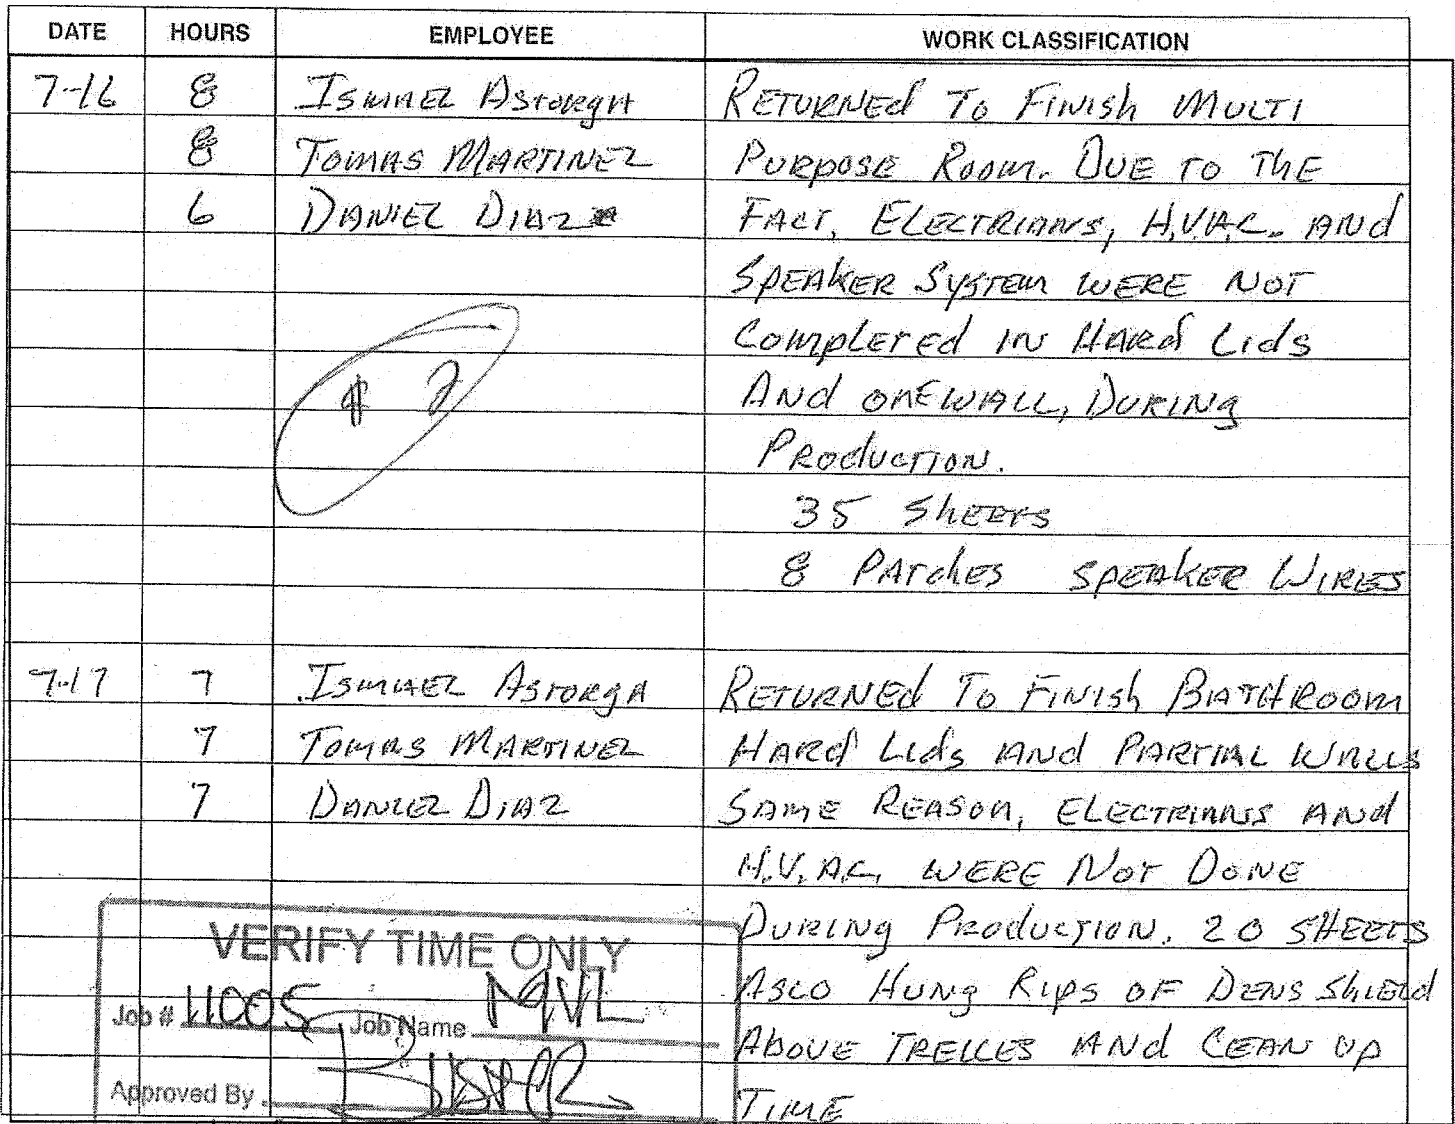 DATE HOURS EMPLOYEE WORK CLASSIFICATION
7-16 8 ISMAEL ASTORGA RETURNED TO FINISH MULTI
8 TOMAS MARTINEZ PURPOSE ROOM. DUE TO THE
6 DANIEL DIAZ FACT, ELECTRIANS, H.V.A.C. AND
SPEAKER SYSTEM WERE NOT
COMPLETED IN HARD LIDS
$ 2 AND ONE WALL, DURING
PRODUCTION.
35 SHEETS
8 PATCHES SPEAKER WIRES
7-17 7 ISMAEL ASTORGA RETURNED TO FINISH BATHROOM
7 TOMAS MARTINEZ HARD LIDS AND PARTIAL WALLS
7 DANIEL DIAZ SAME REASON, ELECTRIANS AND
H.V.A.C. WERE NOT DONE
VERIFY TIME ONLY DURING PRODUCTION. 20 SHEETS
Job # 11005 Job Name MVL ASLO HUNG RIPS OF DENS SHIELD
ABOVE TRELLES AND CLEAN UP
Approved By TIME